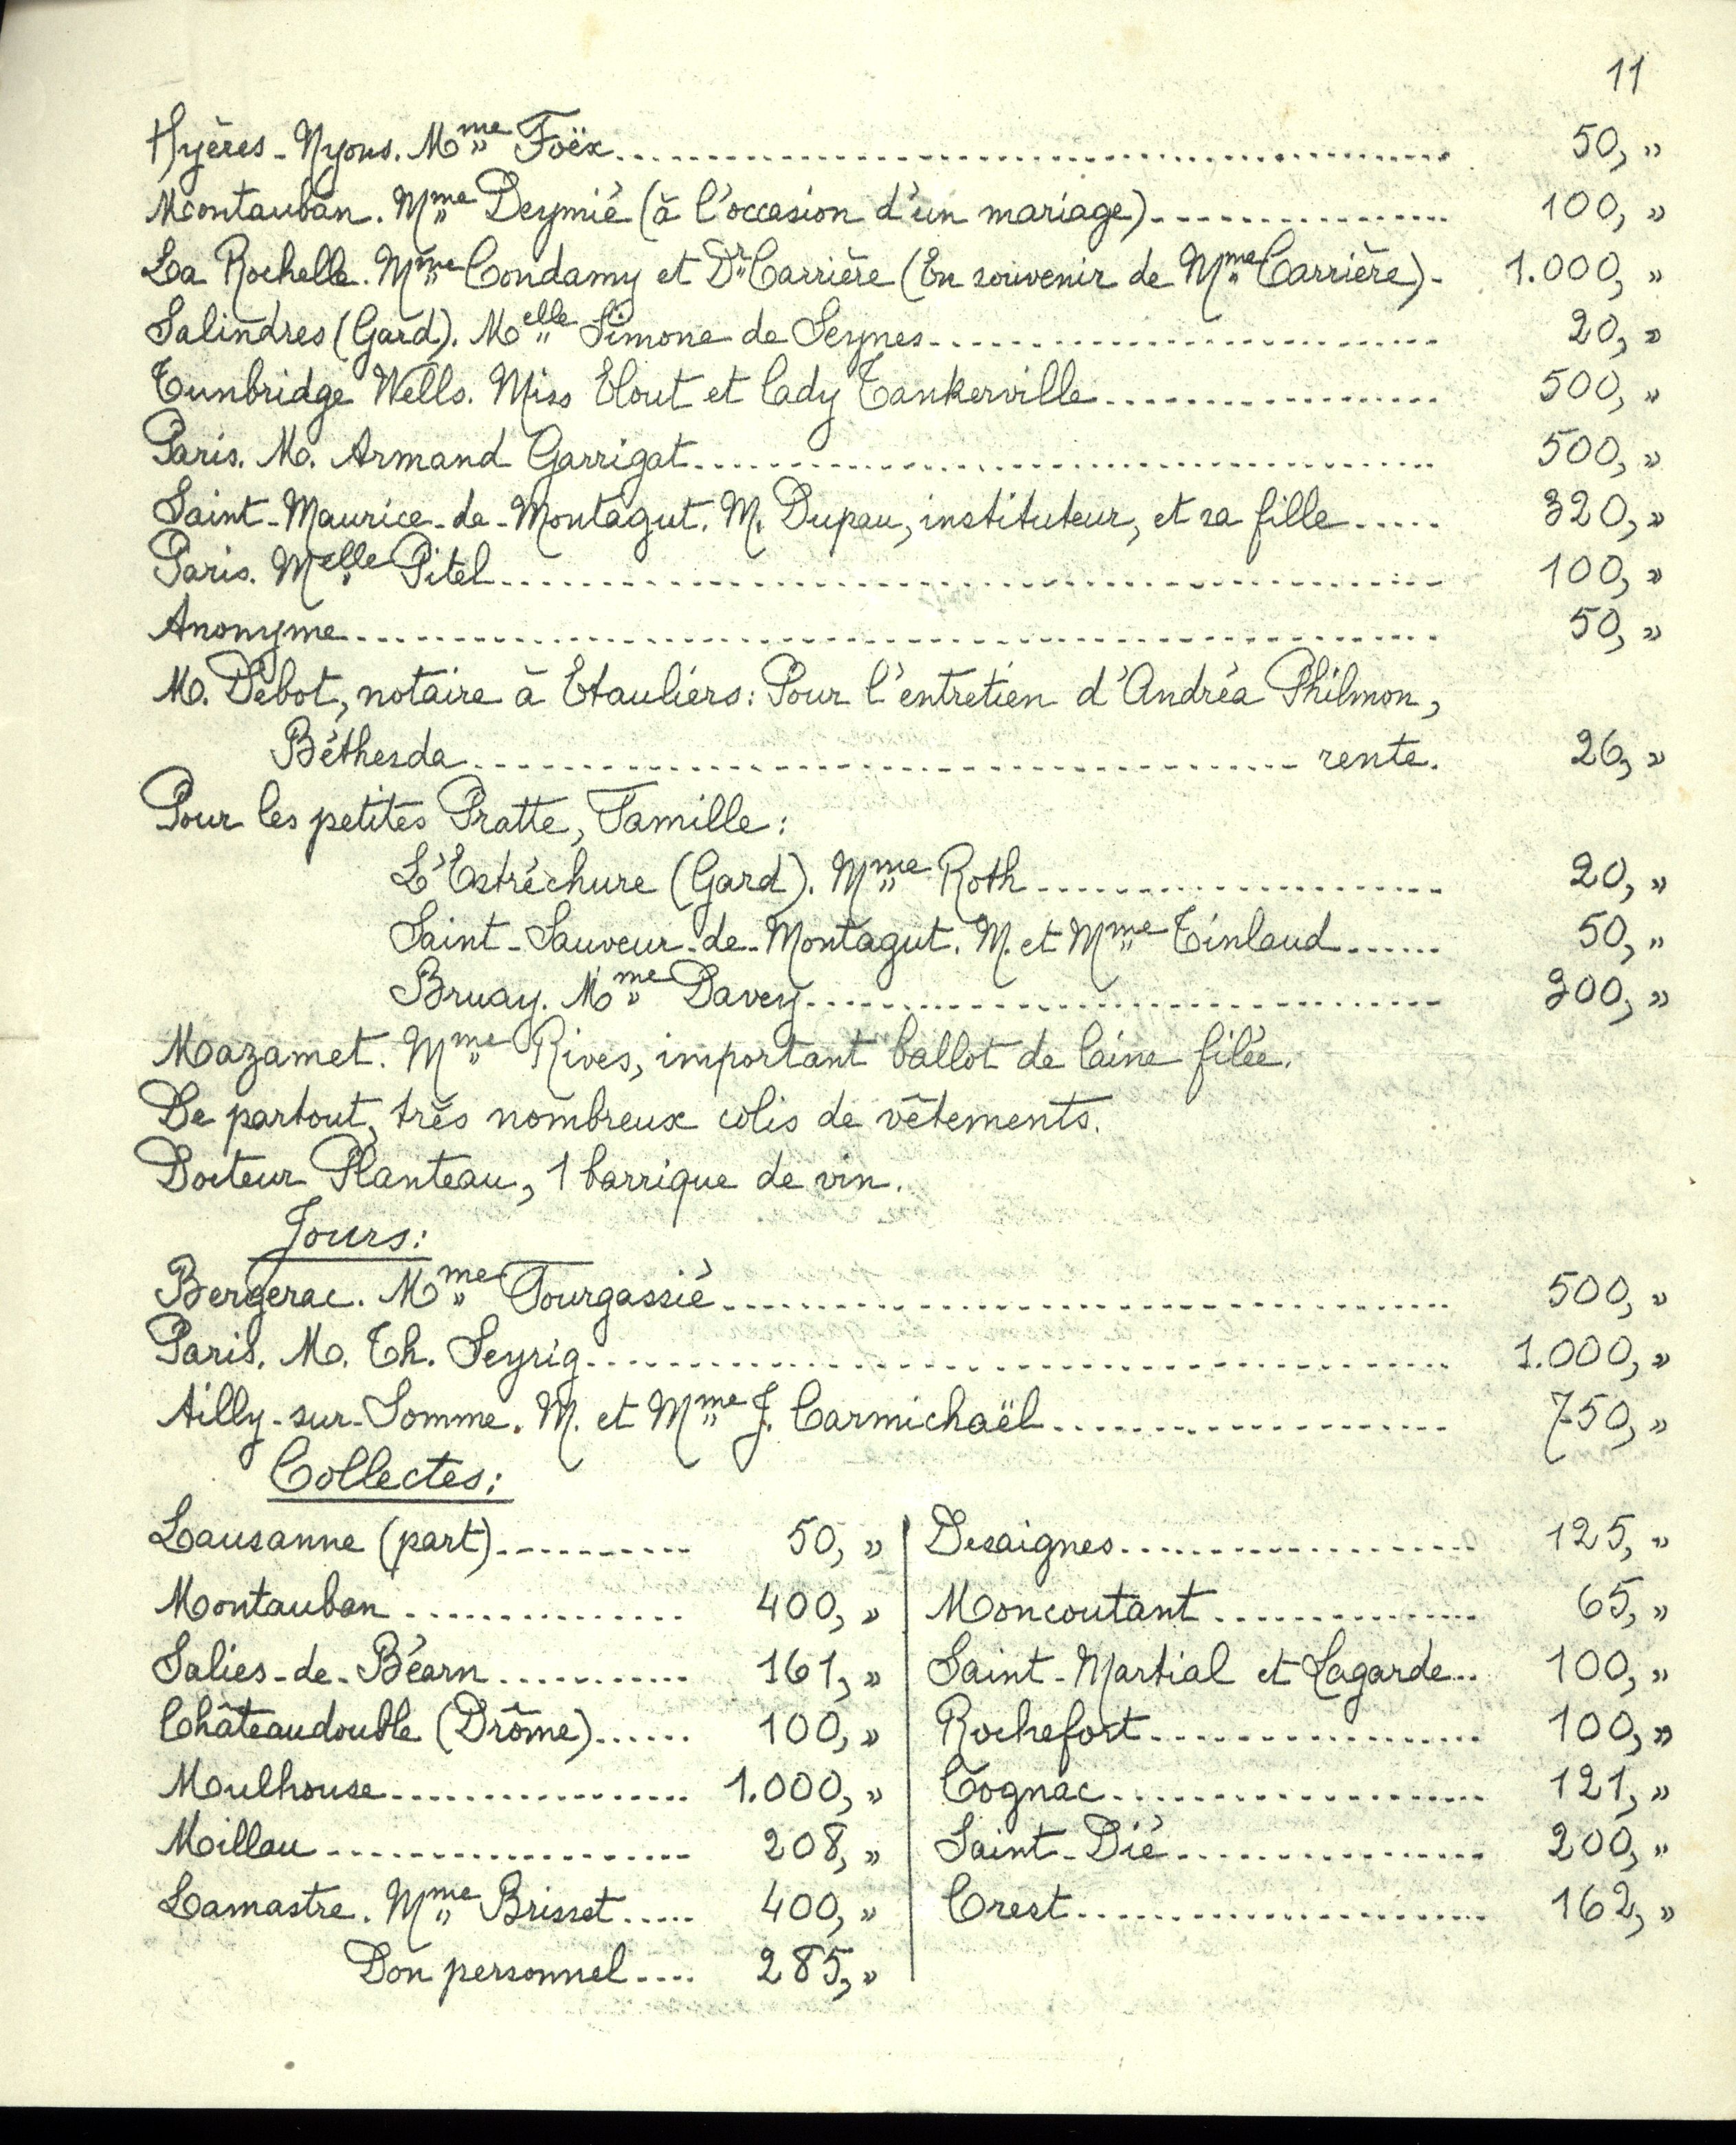 11
Hyères-Nyons. Mme Foëx........ 50,"
Montauban. Mme Deymié (à l'occasion d'un mariage)........ 100,"
La Rochelle. Mme Condamy et Dr Carrière (En souvenir de Mme Carrière)- 1.000,"
Salindres (Gard). Melle Simone de Seynes........ 20,"
Tunbridge Wells. Miss Elout et Lady Tankerville........ 500,"
Paris. M. Armand Garrigat........ 500,"
Saint-Maurice-de-Montagut. M. Dupau, instituteur, et sa fille..... 320,"
Paris. Melle Pitel........ 100,"
Anonyme........ 50,"
M. Debot, notaire à Etauliers: Pour l'entretien d'Andréa Philmon,
Béthesda........ rente. 26,"
Pour les petites Pratte, Famille:
L'Estréchure (Gard). Mme Roth........ 20,"
Saint-Sauveur-de-Montagut. M. et Mme Tinland...... 50,"
Bruay. Mme Davey........ 300,"
Mazamet. Mme Rives, important ballot de laine filée.
De partout, très nombreux colis de vêtements.
Docteur Planteau, 1 barrique de vin.
Jours:
Bergerac. Mme Fourgassié........ 500,"
Paris. M. Th. Seyrig........ 1.000,"
Ailly-sur-Somme. M. et Mme J. Carmichaël........ 750,"
Collectes:
Lausanne (part)........ 50,"
Montauban........ 400,"
Salies-de-Béarn........ 161,"
Châteaudouble (Drôme)...... 100,"
Mulhouse........ 1.000,"
Millau........ 208,"
Lamastre. Mme Brisset..... 400,"
Don personnel.... 285,"
Desaignes........ 125,"
Moncoutant........ 65,"
Saint-Martial et Lagarde... 100,"
Rochefort........ 100,"
Cognac........ 121,"
Saint-Dié........ 200,"
Crest........ 162,"